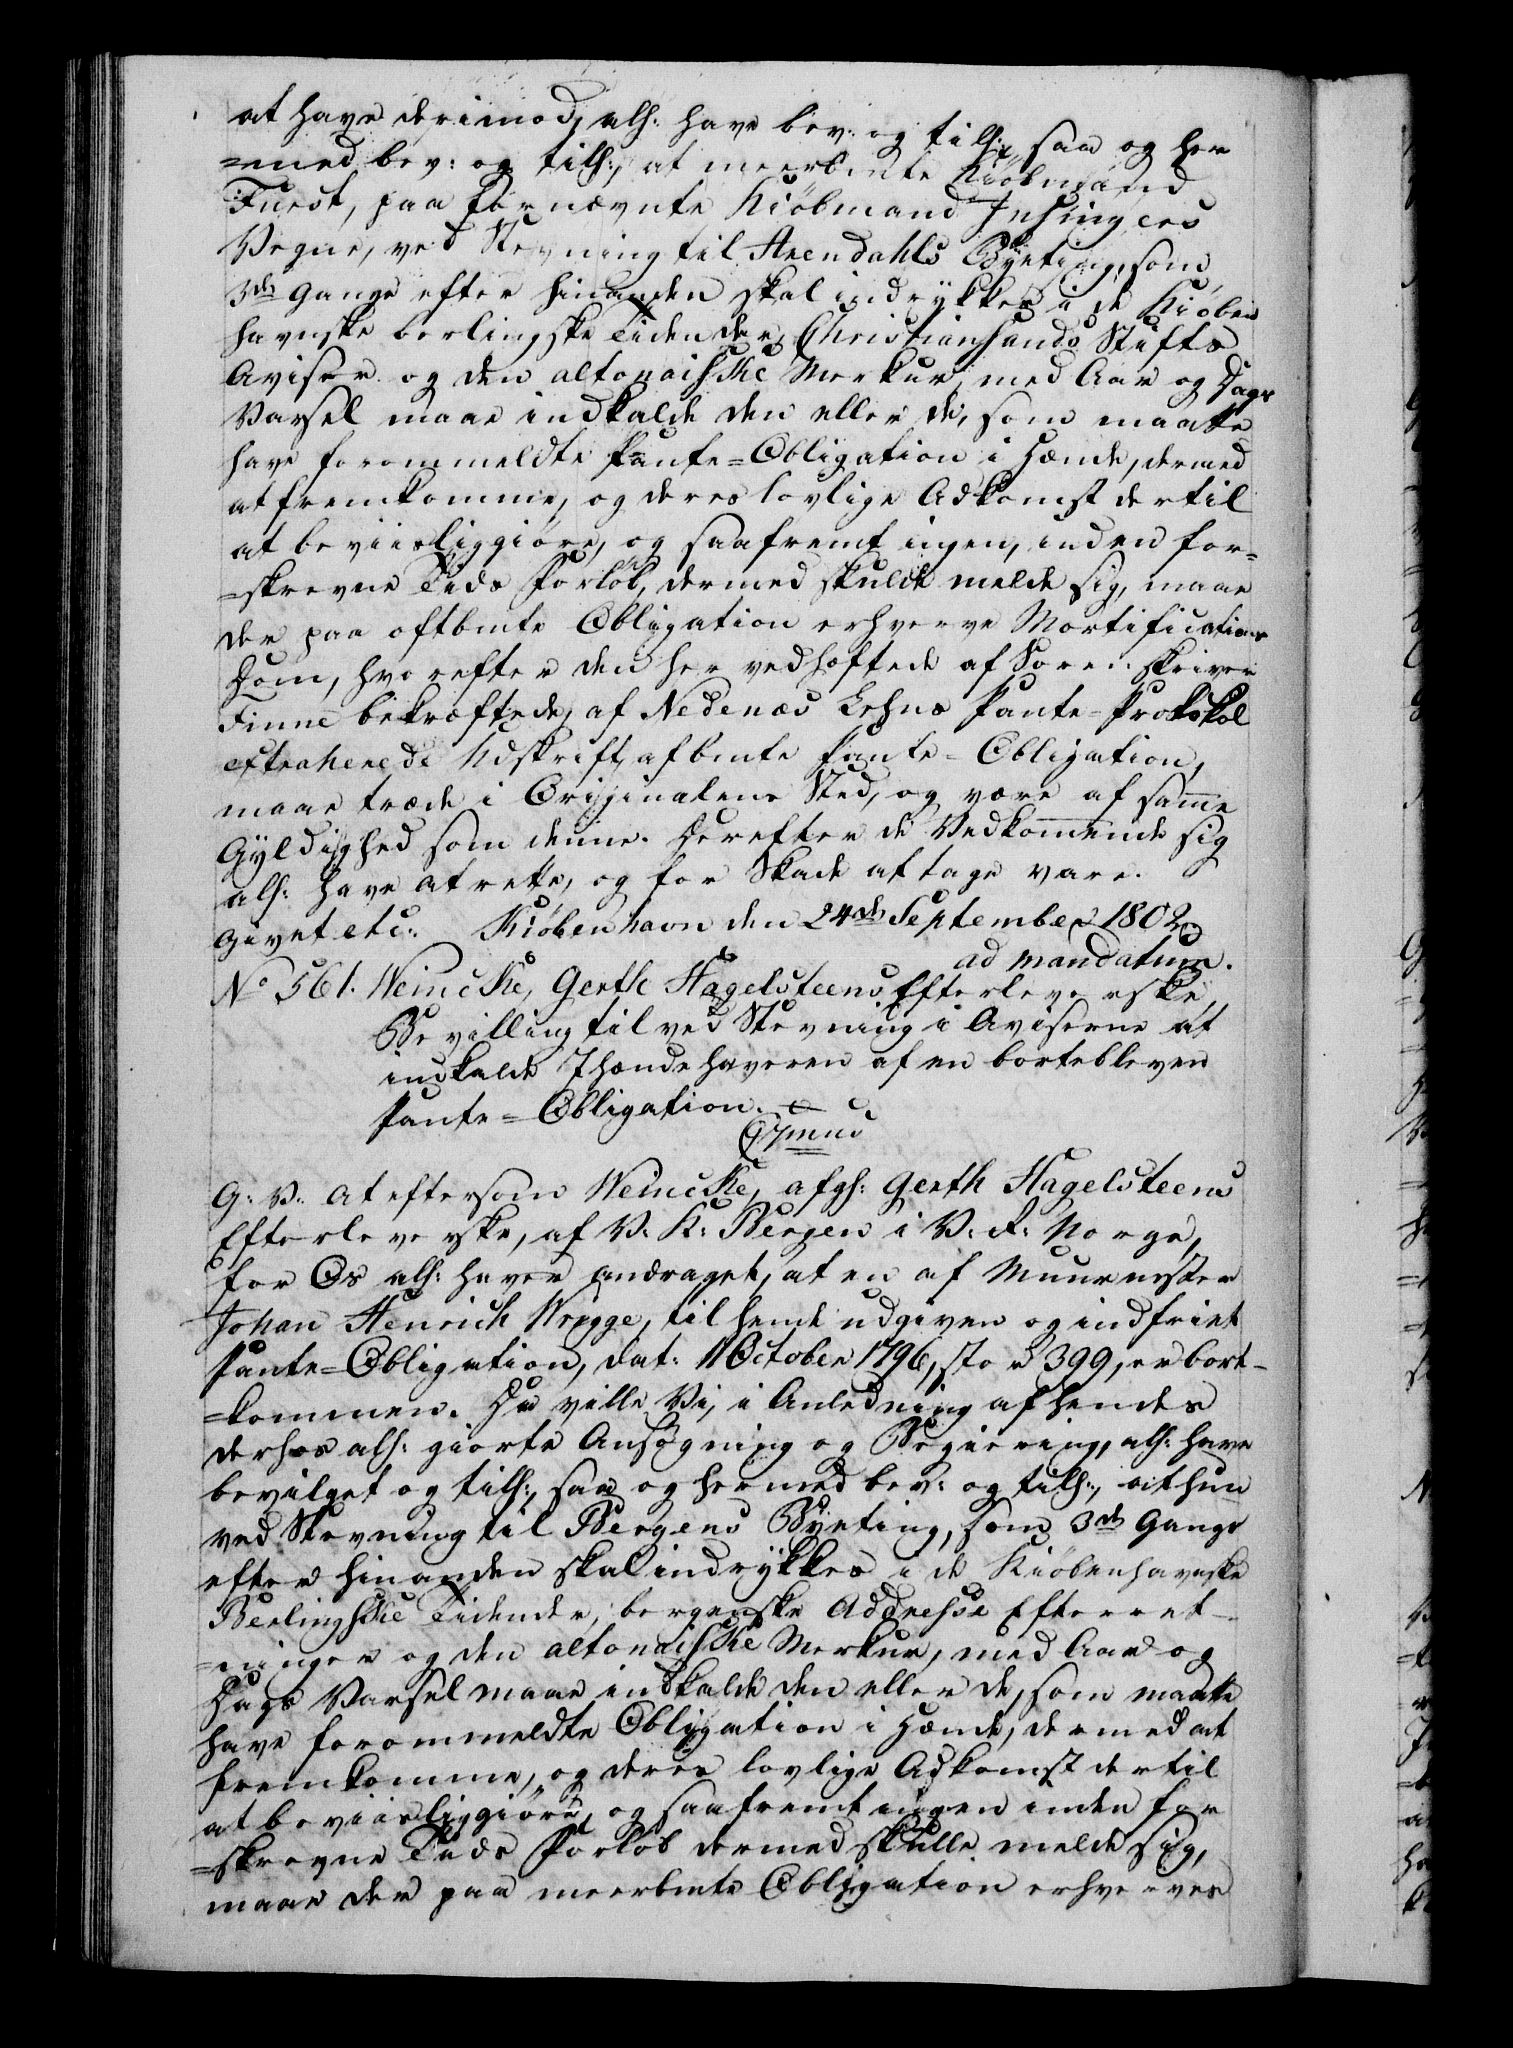 at have derimod, als: have bev: og till:, saa og her
=med bev: og till:, at meerbmte Kiöbmand
Fuest, paa fornævnte Kiöbmand Insinges
Vegne, ved Stevning til Arendahls Byeting, som
3de Gange efter hinanden skal indrykkes i de Kiöben
havnske berlingske Tidender, Christiansands Stifts
Aviser og den altonaiske Merkur, med Aar og Dags
Varsel maae indkalde den eller de, som maatte
have forommeldte Pante=Obligation i Hænde, dermed
at fremkomme, og deres lovlige Adkomst dertil
at beviisliggiöre, og saafremt ingen, inden for=
=skrevne Tids Forløb, dermed skulde melde sig, maae
der paa oftbmte Obligation erhverve Mortifications
Dom, hvorefter den her vedhæftede af Sorenskriver
Finne bekræftede, af Nedenæs Lehns Pante=Protokol
extraherede Udskrift af bmte Pante=Obligation,
maae træde i Originalens Sted, og være af samme
Gyldighed som denne. Derefter de Vedkommende sig
als: have at rette, og for Skade at tage vare.
Givet etc: Kiöbenhavn den 24de September 1802.
ad mandatum.
No 561. Weincke, Gerth Hagelsteens Efterleverske,
Bevilling til ved Stevning i Aviserne at
indkalde Ihændehaveren af en bortebleven
Pante=Obligation.
G: V: at eftersom Weincke, afg: Gerth Hagelsteens
Efterleverske, af V: K: Bergen i V: R: Norge,
for Os als: haver andraget, at en af Muurmester
Johan Henrich Wrigge, til hende udgiven og indfriet
Pante=Obligation, dat: 11 October 1796, stor 399, er bort=
=kommen. Da ville Vi, i Anledning af hendes
derhos als: giorte Ansøgning og Begiering, als: have
bevilget og till:, saa og hermed bev: og till:, at hun
ved Stevning til Bergens Byeting, som 3de Gange
efter hinanden skal indrykkes i de Kiöbenhavnske
Berlingske Tidender, bergenske Addresse Efterret=
=ninger og den altonaiske Merkur, med Aar og
Dags Varsel maae indkalde den eller de, som maatte
have forommeldte Obligation i Hænde, dermed at
fremkomme, og deres lovlige Adkomst dertil
at beviisliggiöre, og saafremt ingen inden for
=skrevne Tids Forløb dermed skulle melde sig,
maae der paa meerbmte Obligation erhverves